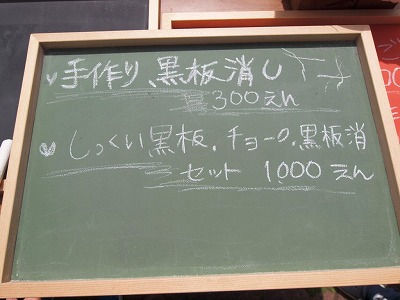 ♥手作り、黒板消し
300えん
♥しっくい黒板.チョーク.黒板消
セット 1000えん